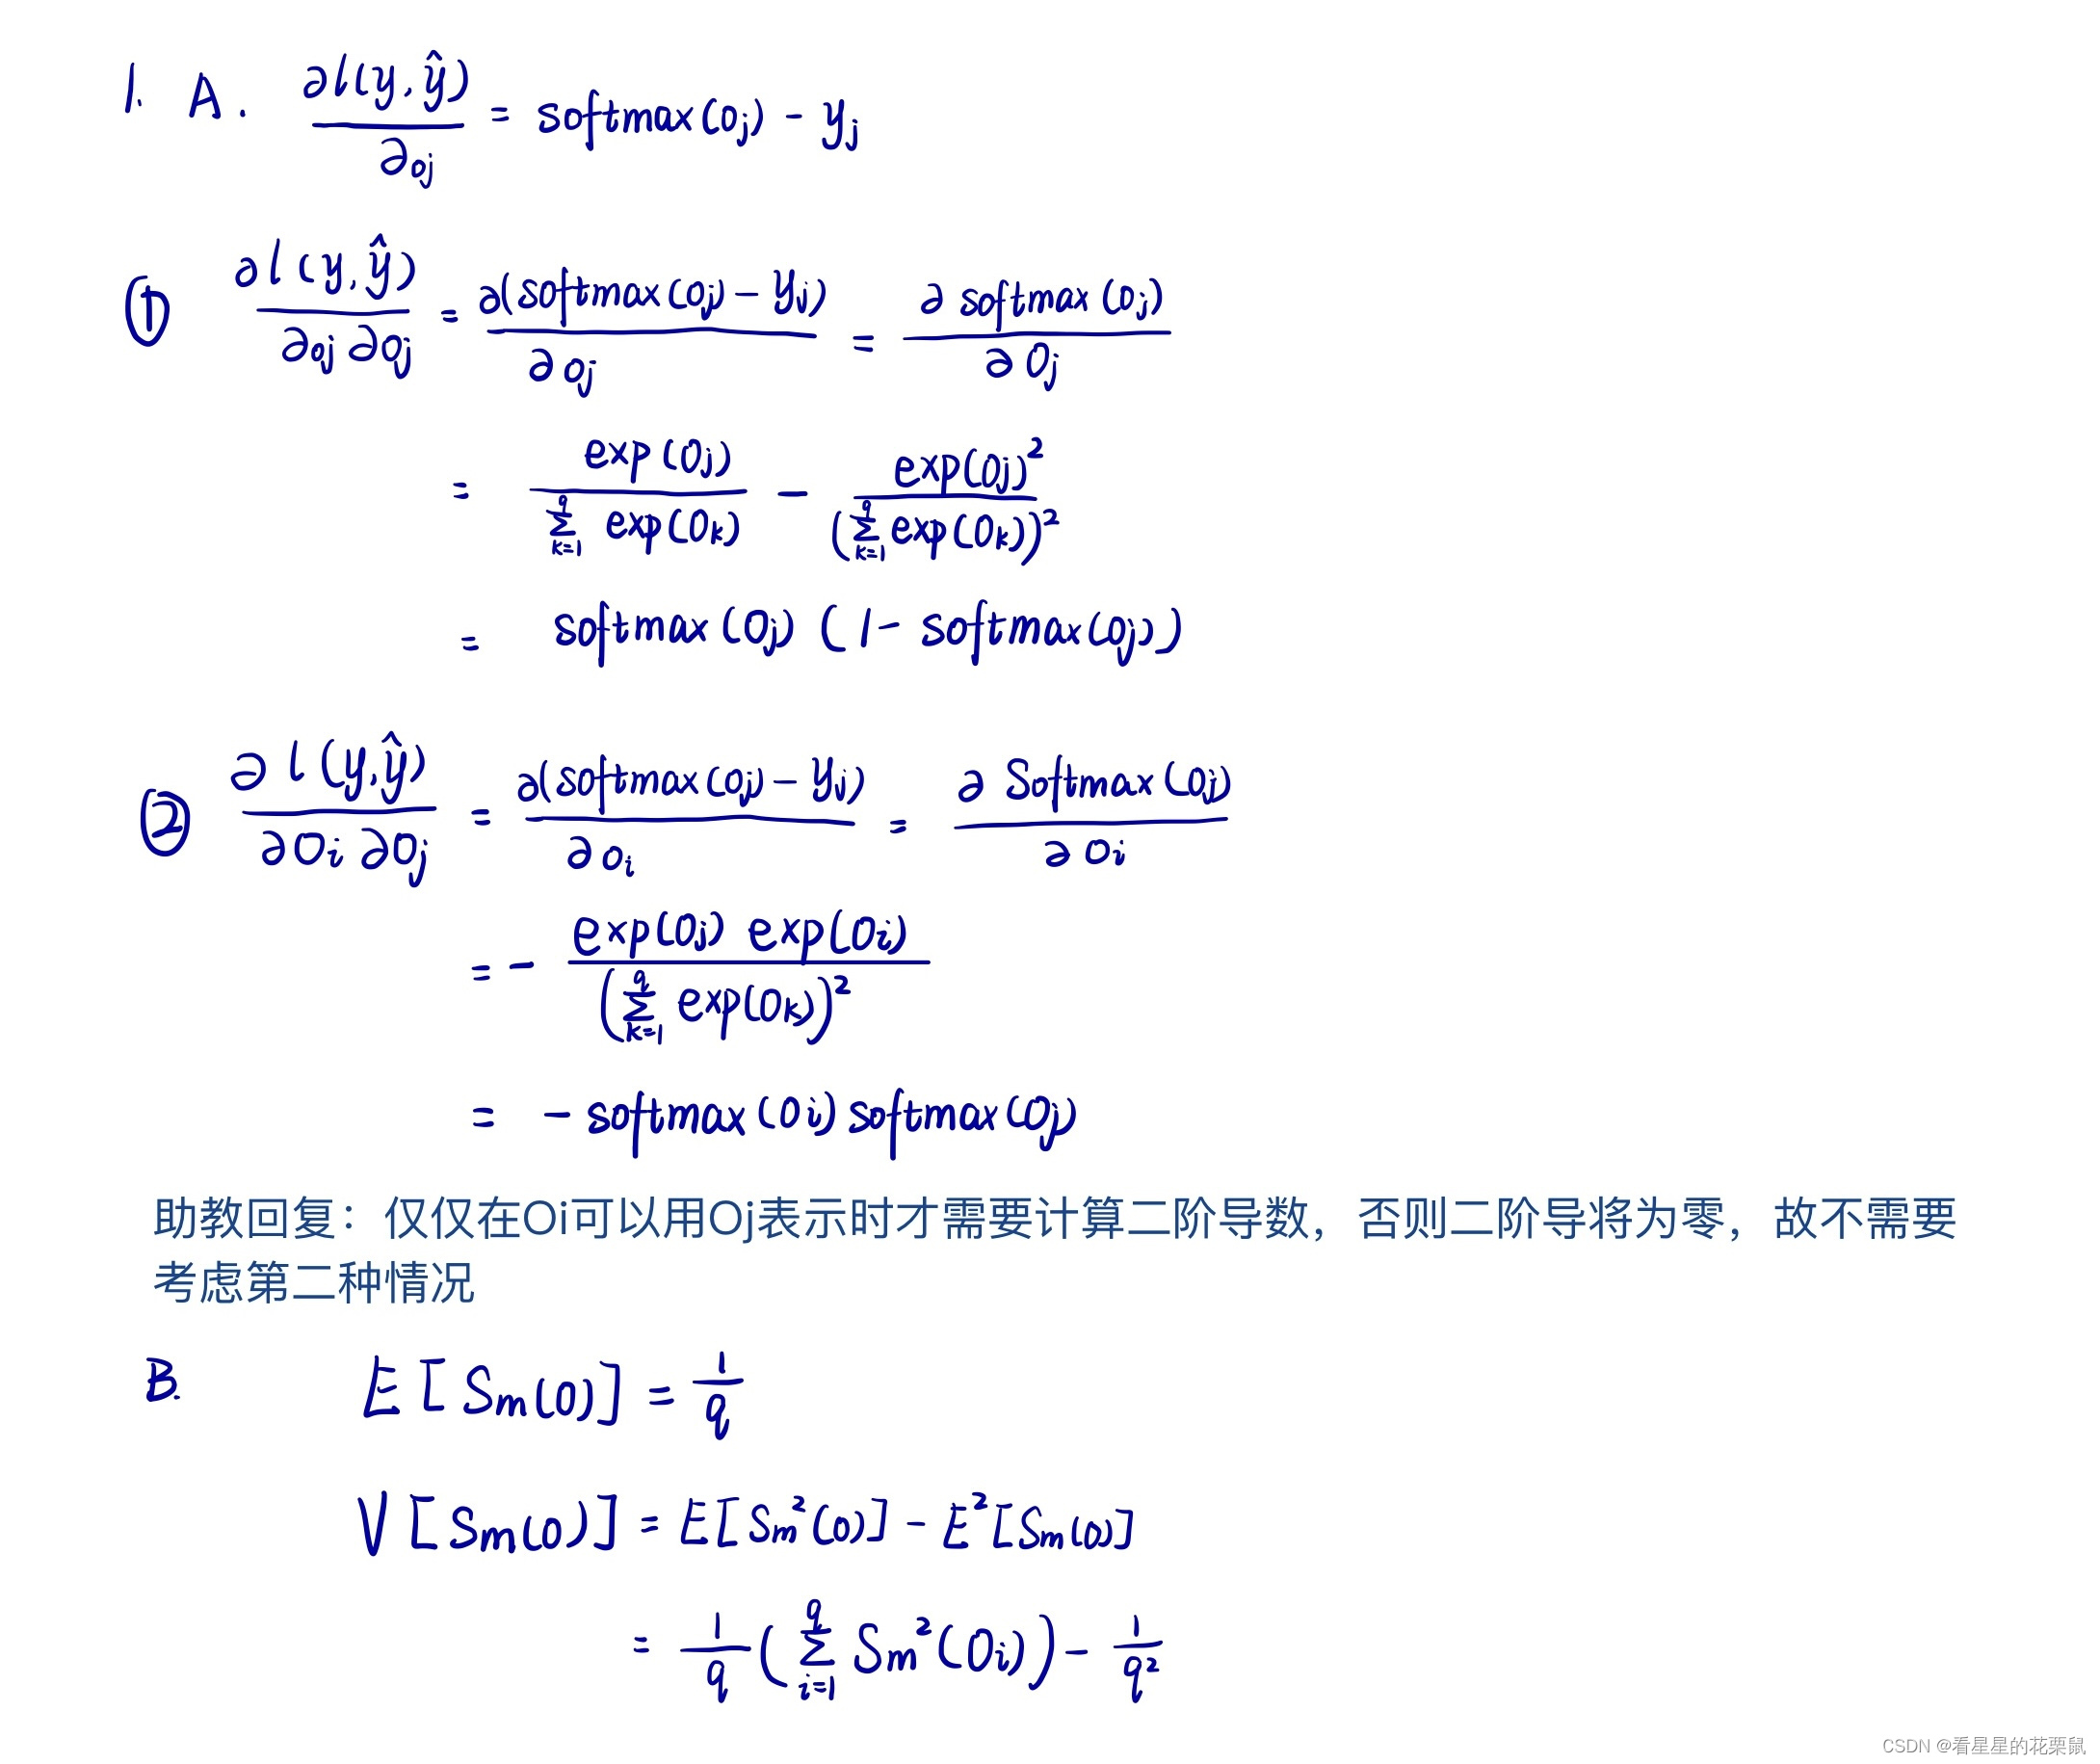 1. A. ∂l(y,ŷ)/∂oj = softmax(oj) - yj
① ∂l(y,ŷ)/∂oj∂oj = ∂(softmax(oj) - yj)/∂oj = ∂softmax(oj)/∂oj
= exp(oj)/∑_{k=1}^{q} exp(ok) - exp(oj)²/(∑_{k=1}^{q} exp(ok))²
= softmax(oj) (1 - softmax(oj))
② ∂l(y,ŷ)/∂oi∂oj = ∂(softmax(oj) - yj)/∂oi = ∂Softmax(oj)/∂oi
= - exp(oj) exp(oi)/(∑_{k=1}^{q} exp(ok))²
= - softmax(oi) softmax(oj)
助教回复：仅仅在Oi可以用Oj表示时才需要计算二阶导数，否则二阶导将为零，故不需要
考虑第二种情况
B. E[Sm(o)] = 1/q
V[Sm(o)] = E[Sm²(o)] - E²[Sm(o)]
= 1/q (∑_{i=1}^{q} Sm²(oi)) - 1/q²
CSDN @看星星的花栗鼠